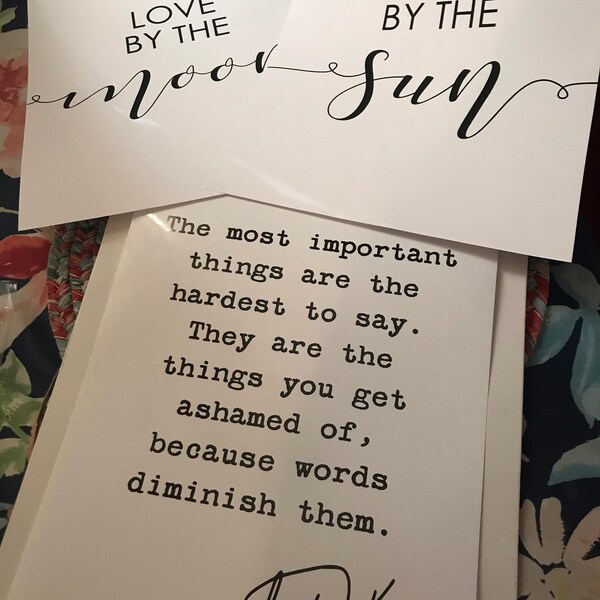 LOVE
BY THE
moon
BY THE
sun
The most important
things are the
hardest to say.
They are the
things you get
ashamed of,
because words
diminish them.